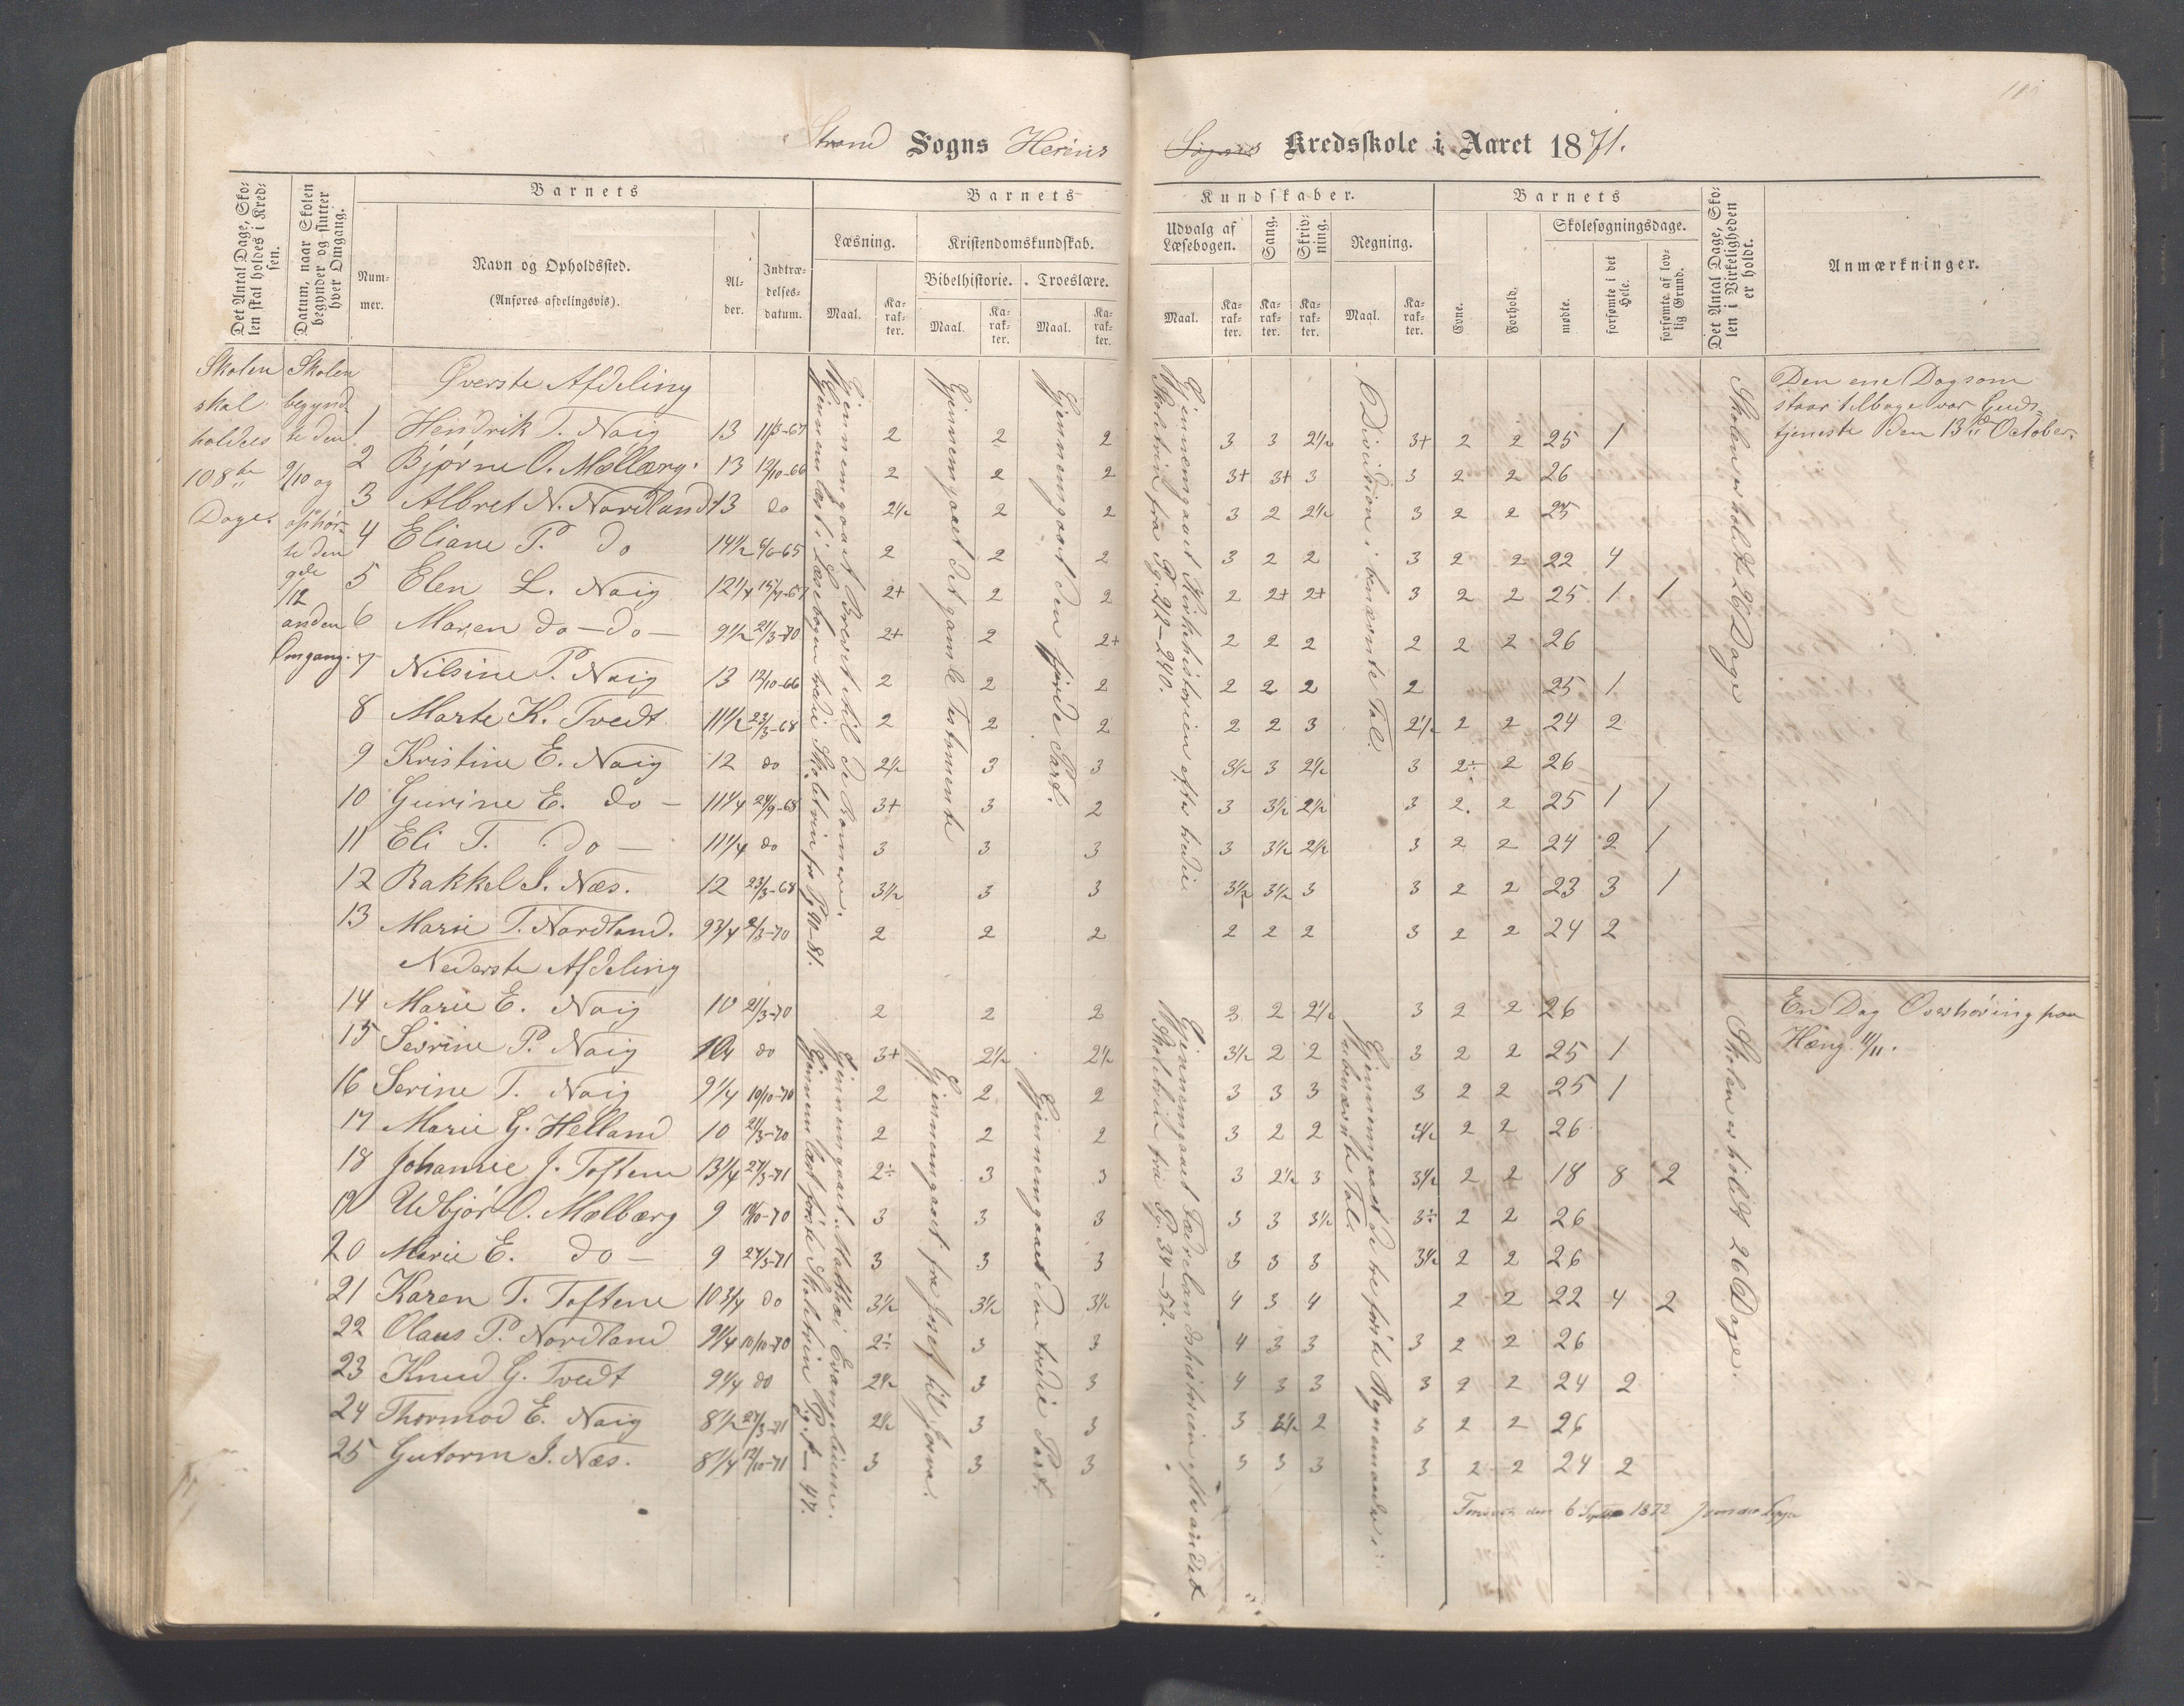 Strand Sogns Heröens Sogns Kredsskole i Aaret 1871.
Det Antal Dage, Skolen skal holdes i Kredsen.
Datum, naar Skolen begynder og slutter hver Omgang.
Barnets
Nummer.
Navn og Opholdssted.
(Anføres afdelingsvis).
Alder.
Indtrædelsesdatum.
Barnets Kundskaber.
Læsning.
Maal.
Karakter.
Kristendomskundskab.
Bibelhistorie.
Maal.
Karakter.
Troeslære.
Maal.
Karakter.
Udvalg af Læsebogen.
Maal.
Karakter.
Sang.
Karakter.
Skrivning.
Karakter.
Regning.
Maal.
Karakter.
Barnets
Evne.
Forhold.
Skolesøgningsdage.
mødte.
forsømte i det Hele.
forsømte af lovlig Grund.
Det Antal Dage, Skolen i Virkeligheden er holdt.
Anmærkninger.
Skolen skal holdes 108 te Dage.
Skolen begyndte den 9/10 og ophørte den 9de/12 anden Omgang.
Øverste Afdeling
1 Hendrik T. Naig 13 11/3-67 2 2 2 3 3 2½ 3+ 2 2 25 1
2 Bjørne O. Mælbærg. 13 12/10-66 2 2 2 3+ 3+ 3 3 2 2 26
3 Albret N. Nordland 13 do 2½ 2 2 3 2 2½ 3 2 2 25
4 Eliane P. do 14½ 6/6-65 2 2 2 3 2 2 3 2 2 22 4
5 Elen L. Naig 12¼ 15/4-67 2+ 2 2 2 2+ 2+ 3 2 2 25 1 1
6 Maren do - do - 9½ 21/3-70 2+ 2 2+ 2 2 2 2 2 2 26
7 Nilsine P. Naig 13 12/10-66 2 2 2 2 2 2 2 25 1
8 Marte K. Tvedt 11½ 23/3-68 2 2 2 2 2 3 2½ 2 2 24 2
9 Kristine E. Naig 12 do 2½ 3 3 3½ 3 2½ 3 2÷ 2 26
10 Gurine E. do - 11¼ 24/9-68 3+ 3 2 3 3½ 2½ 3 2. 2 25 1 1
11 Eli T. do - 11¼ do 3 3 3 3 3½ 2½ 3 2 2 24 2 1
12 Rakkel J. Næs. 12 23/3-68 3½ 3 3 3½ 3½ 3 3 2 2 23 3 1
13 Marie T. Nordland. 9¾ 2/3-70 2 2 2 2 2 2 3 2 2 24 2
Nederste Afdeling
14 Marie E. Naig 10 21/3-70 2 2 2 3 2 2½ 3 2 2 26
15 Sevrine P. Naig 10¼ do 3+ 2½ 2½ 3½ 2 2 3 2 2 25 1
16 Serine T. Naig 9¼ 10/10-70 2 2 2 3 3 3 3 2 2 25 1
17 Marie G. Helland 10 21/3-70 2 2 2 3 2 2 3½ 2 2 26
18 Johanne J. Toftene 13¼ 27/3-71 2÷ 3 3 3 2½ 3 3½ 2 2 18 8 2
19 Udbjør O. Mælbærg 9 10/10-70 3 3 3 3 3 3½ 3÷ 2 2 26
20 Marie E. do - 9 27/3-71 3 3 3 3 3 3 3½ 2 2 26
21 Karen T. Toftene 10¾ do 3½ 3½ 3½ 4 3 4 2 2 22 4 2
22 Olaus P. Nordland 9¼ 10/10-70 2÷ 3 3 4 3 3 3 2 2 26
23 Knud G. Tvedt 9¼ do 2½ 3 3 4 3 3 3 2 2 24 2
24 Thormod E. Naig 8½ 27/3-71 2½ 3 3 3 3½ 2 3 2 2 26
25 Gutorm J. Næs. 8¼ 12/10-71 3 3 3 3 3 3 3 2 2 24 2
Gjennemgaaet Brevet til de Romere.
Gjennemlæst i Læsebogen tredie Skoletrin fra Pg. 40-81.
Gjennemgaaet det gamle Testamente
Gjennemgaaet den fjerde Part.
Gjennemgaaet Kirkehistorien efter tredie Skoletrin fra Pg. 212-240.
Division i benævnte Tal.
Skolen er holdt 26 Dage
Den ene Dag som staar tilbage var Gudstjeneste den 13de October.
Gjennemgaaet Matthæi Evangelium.
Gjennemlæst første Skoletrin Pg. 1-47.
Gjennemgaaet fra Josef til Josva.
Gjennemgaaet den tredie Part.
Gjennemgaaet Fædrelandshistorien efter andet Skoletrin fra Pg. 34-52.
Gjennemgaaet de tre første Regnemaader i ubenævnte Tal.
Skolen er holdt 26 Dage.
En Dag Overhøring paa Hæng. 11/11.
den 6 Septbr 1872